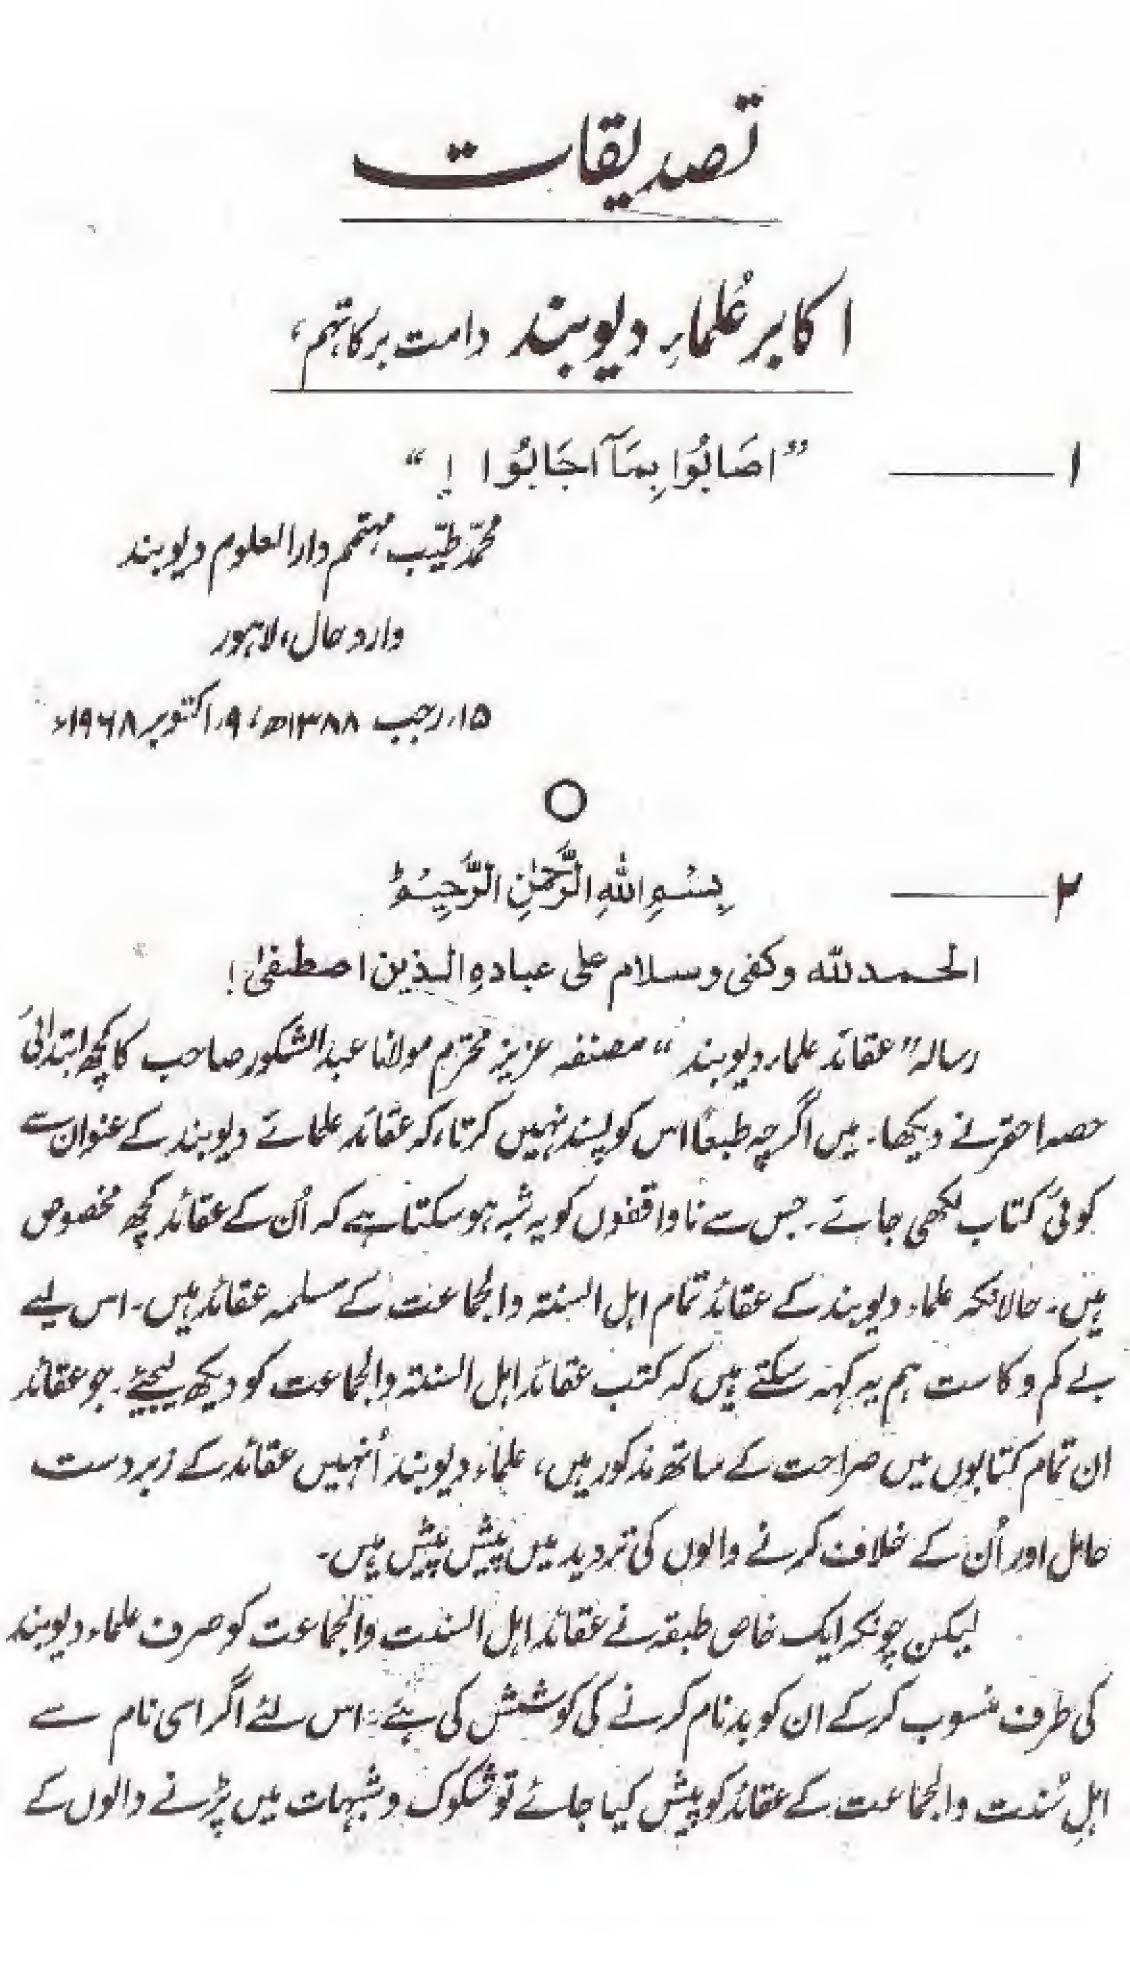 تصدیقات
اکابر عُلماءِ دیوبند دامت برکاتہم،
۱ ——— ”اَصَابُوْا بِمَآ اَجَابُوْا !“
محمّد طیّب، مہتمم دارالعلوم دیوبند
وارد حال، لاہور
۱۵؍ رجب ۱۳۸۸ھ، ۹؍ اکتوبر ۱۹۶۸ء
۲ ——— بِسْمِ اللهِ الرَّحْمٰنِ الرَّحِيْمِ ط
الحمد للّٰه وکفی وسلام علی عبادہِ الذین اصطفیٰ!
رسالہ ”عقائد علماء دیوبند“ مصنفہ عزیز محترم مولانا عبدالشکور صاحب کا کچھ ابتدائی
حصہ احقر نے دیکھا۔ میں اگرچہ طبعًا اس کو پسند نہیں کرتا، کہ عقائد علمائے دیوبند کے عنوان سے
کوئی کتاب لکھی جائے۔ جس سے ناواقفوں کو یہ شبہ ہوسکتا ہے کہ اُن کے عقائد کچھ مخصوص
ہیں۔ حالانکہ علماء دیوبند کے عقائد تمام اہل السنتہ والجماعت کے مسلمہ عقائد ہیں۔ اس لیے
بے کم و کاست ہم یہ کہہ سکتے ہیں کہ کتب عقائد اہل السنتہ والجماعت کو دیکھ لیجئے۔ جو عقائد
ان تمام کتابوں میں صراحت کے ساتھ مذکور ہیں، علماء دیوبند اُنہیں عقائد کے زبردست
حامل اور اُن کے خلاف کرنے والوں کی تردید میں پیش پیش ہیں۔
لیکن چونکہ ایک خاص طبقہ نے عقائد اہل السنت والجماعت کو صرف علماء دیوبند
کی طرف منسوب کرکے ان کو بدنام کرنے کی کوشش کی ہے، اس لئے اگر اسی نام سے
اہلِ سُنت والجماعت کے عقائد کو پیش کیا جائے تو شکوک و شبہات میں پڑنے والوں کے